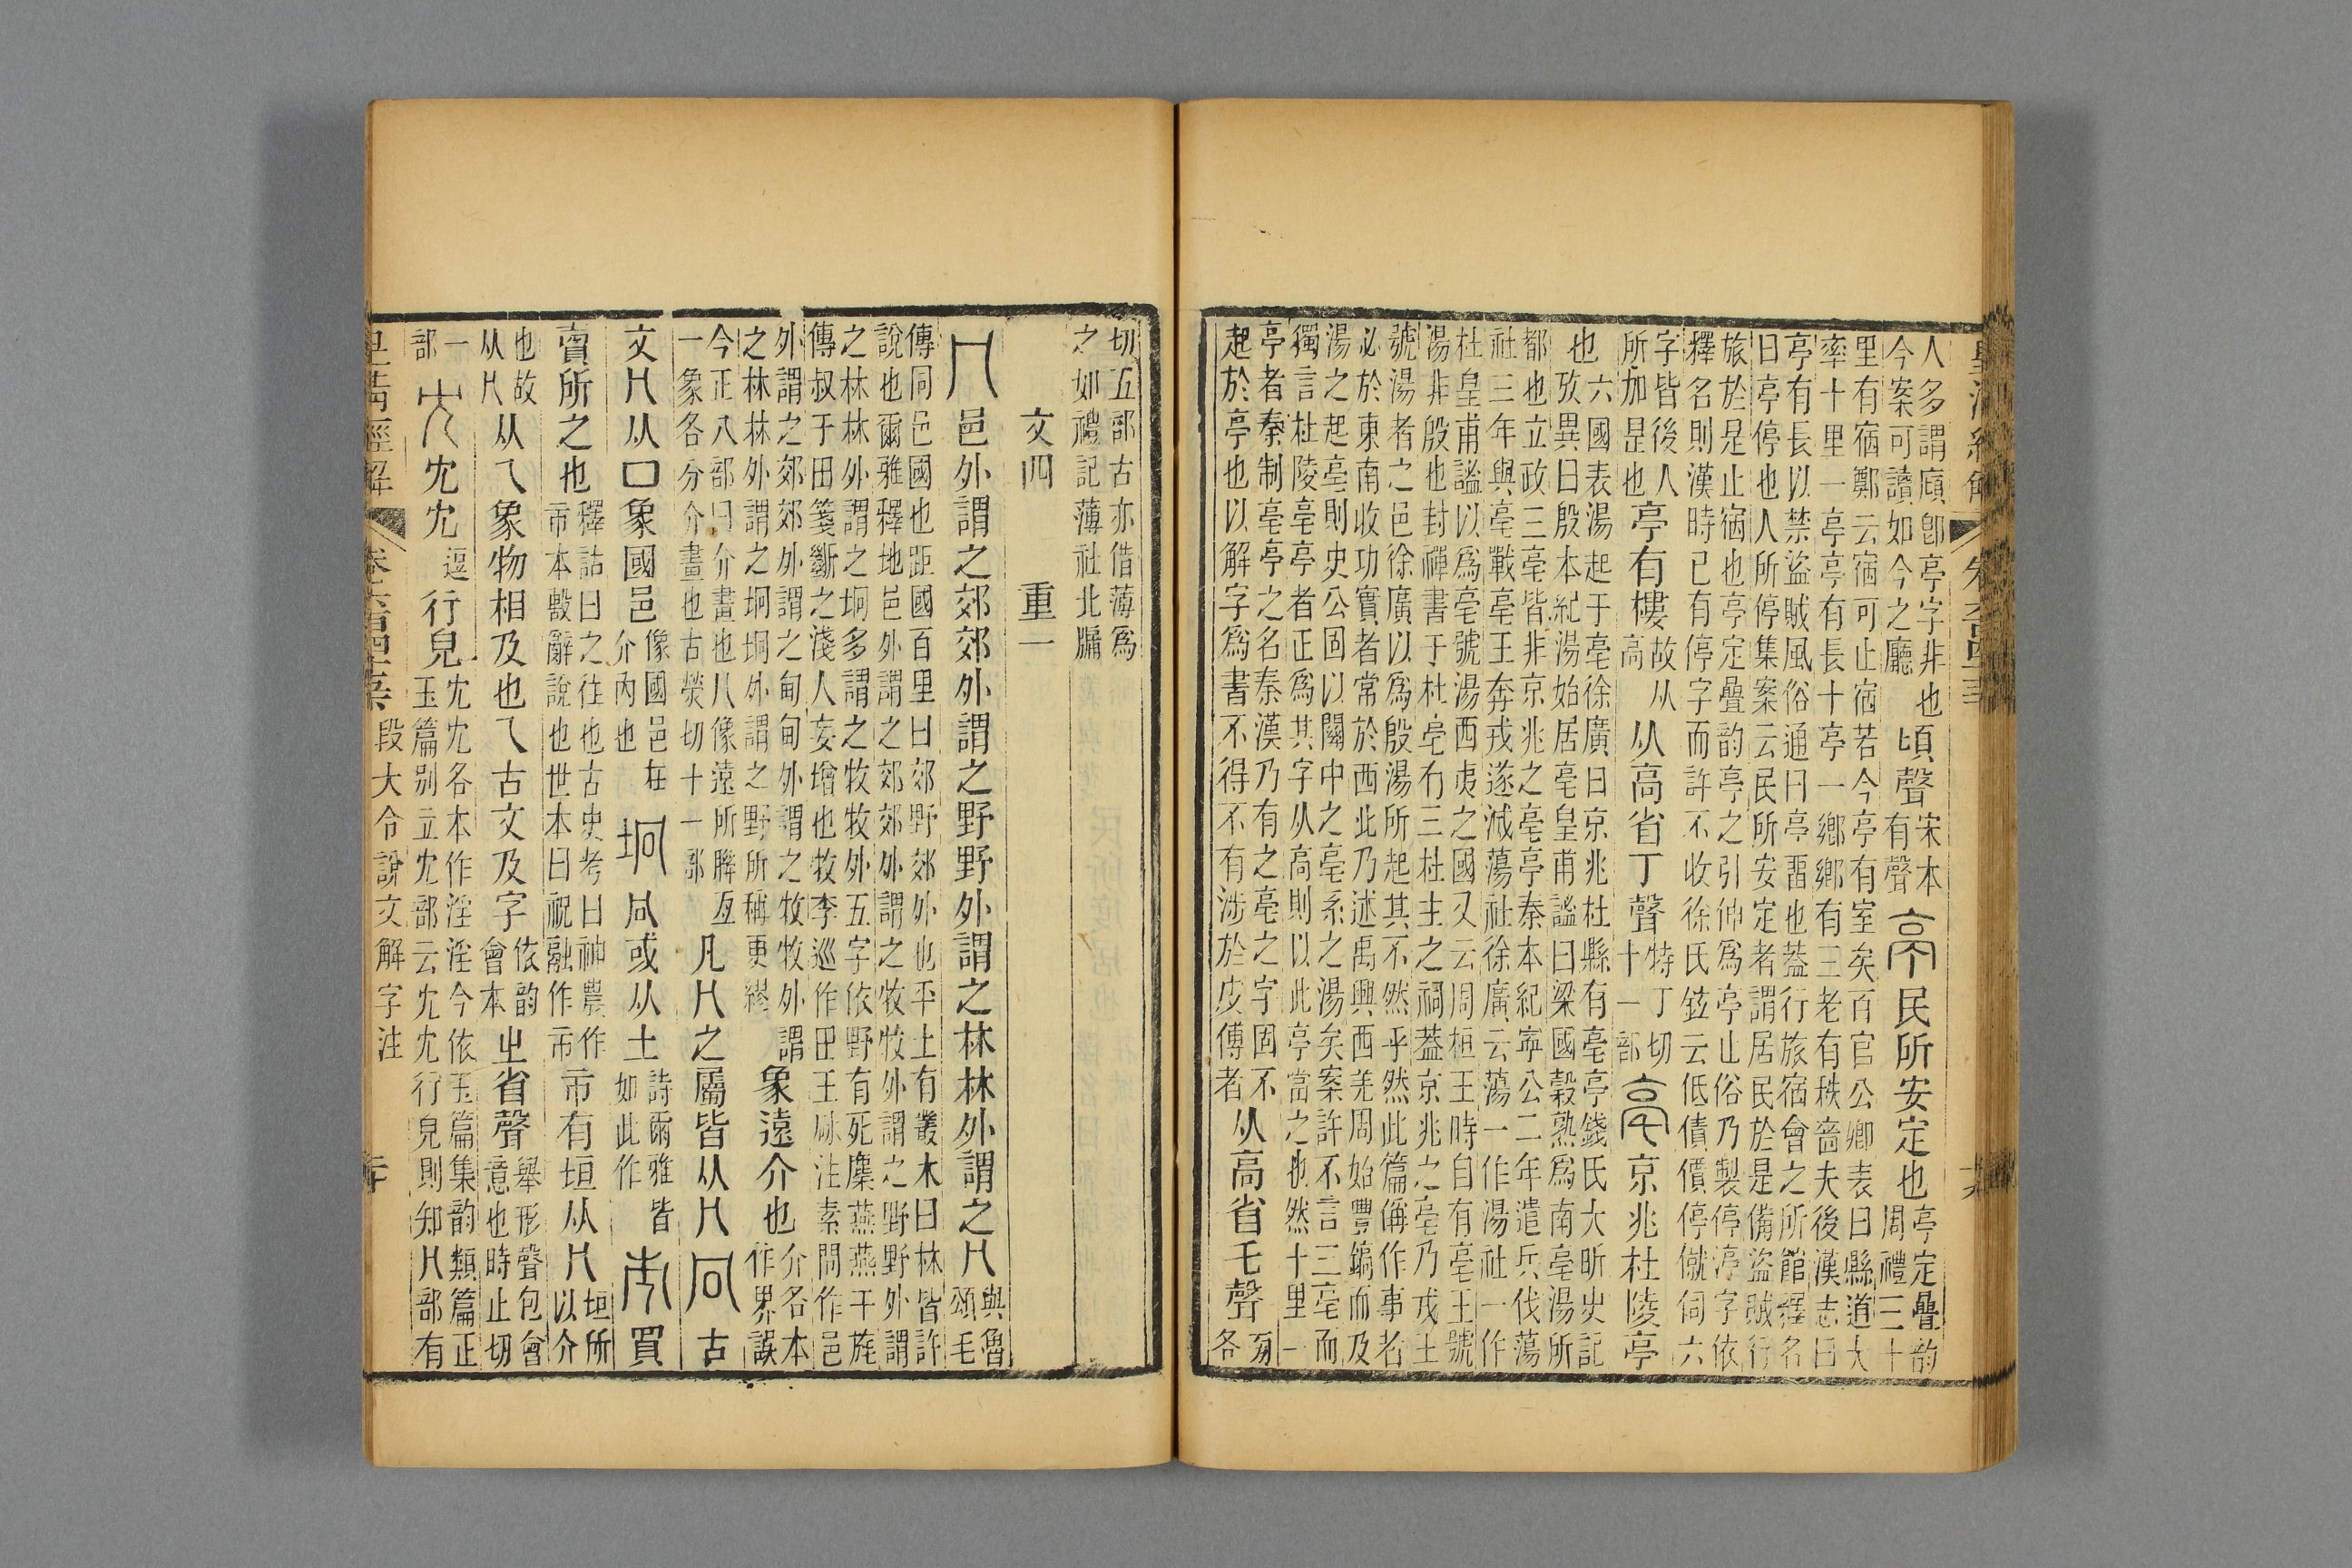 人多謂廎卽亭字非也
今案可讀如今之廳
頃聲
宋本
有聲
亭民所安定也
亭定曡韵
周禮三十
里有宿鄭云宿可止宿若今亭有室矣百官公卿表曰縣道大
率十里一亭亭有長十亭一鄉鄉有三老有秩嗇夫後漢志曰
亭有長以禁盜賊風俗通曰亭畱也蓋行旅宿會之所館釋名
曰亭停也人所停集案云民所安定者謂居民於是備盜賊行
旅於是止宿也亭定曡韵亭之引伸爲亭止俗乃製停渟字依
釋名則漢時已有停字而許不收徐氏鉉云低債價停僦伺六
字皆後人
所加是也
亭有樓
故从
高
从高省丁聲
特丁切
十一部
亳京兆杜陵亭
也
六國表湯起于亳徐廣曰京兆杜縣有亳亭錢氏大昕史記
攷異曰殷本紀湯始居亳皇甫謐曰梁國穀熟爲南亳湯所
都也立政三亳皆非京兆之亳亭秦本紀寧公二年遣兵伐蕩
社三年與亳戰亳王奔戎遂滅蕩社徐廣云蕩一作湯社一作
杜皇甫謐以爲亳號湯西夷之國又云周桓王時自有亳王號
湯非殷也封禪書于杜亳有三杜主之祠蓋京兆之亳乃戎王
號湯者之邑徐廣以爲殷湯所起其不然乎然此篇偁作事者
必於東南收功實者常於西北乃述禹興西羌周始豐鎬而及
湯之起亳則史公固以關中之亳系之湯矣案許不言三亳而
獨言杜陵亳亭者正爲其字从高則以此亭當之也然十里一
亭者秦制亳亭之名秦漢乃有之亳之字固不
起於亭也以解字爲書不得不有涉於皮傅者
从高省乇聲
㫄
各
切五部古亦借薄爲
之如禮記薄社北牖
文四　重一
冂邑外謂之郊郊外謂之野野外謂之林林外謂之冂
與魯
頌毛
傳同邑國也距國百里曰郊野郊外也平土有叢木曰林皆許
說也爾雅釋地邑外謂之郊郊外謂之牧牧外謂之野野外謂
之林林外謂之坰多謂之牧牧外五字依野有死麇燕燕干旄
傳叔于田箋斷之淺人妄增也牧李巡作田王砅注素問作邑
外謂之郊郊外謂之甸甸外謂之牧牧外謂
之林林外謂之坰坰外謂之野所稱更繆
象遠介也
介各本
作界誤
今正八部曰介畫也冂像遠所聮亙
一象各分介畫也古熒切十一部
凡冂之屬皆从冂
冋古
文冂从囗象國邑
像國邑在
介內也
坰冋或从土
詩爾雅皆
如此作
巿買
賣所之也
釋詁曰之往也古史考曰神農作
巿本毄辭說也世本曰祝融作巿
巿有垣从冂
垣所
以介
也故
从冂
从乁象物相及也乁古文及字
依韵
會本
㞢省聲
舉形聲包會
意也時止切
一
部
冘冘冘
逗
行皃
冘冘各本作淫淫今依玉篇集韵類篇正
玉篇別立冘部云冘冘行皃則知冂部有
皇淸經解
段大令說文解字注